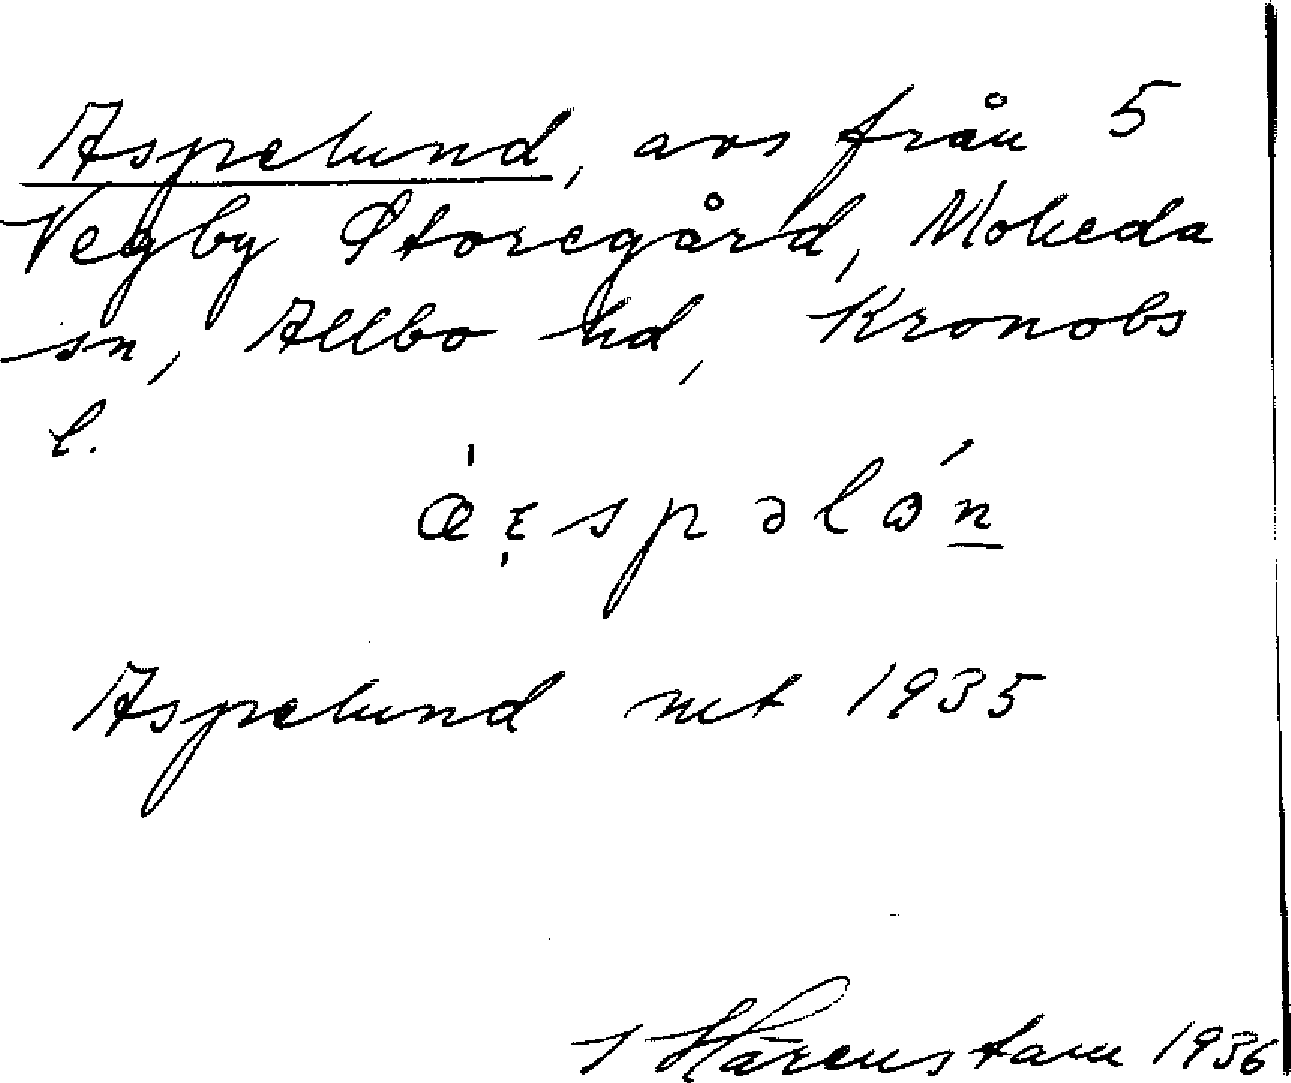 Aspelund, avs från 5
Vegby Storegård, Moheda
sn, Allbo hd, Kronobs
l.
Aspelund mt 1935
J Härenstam 1936